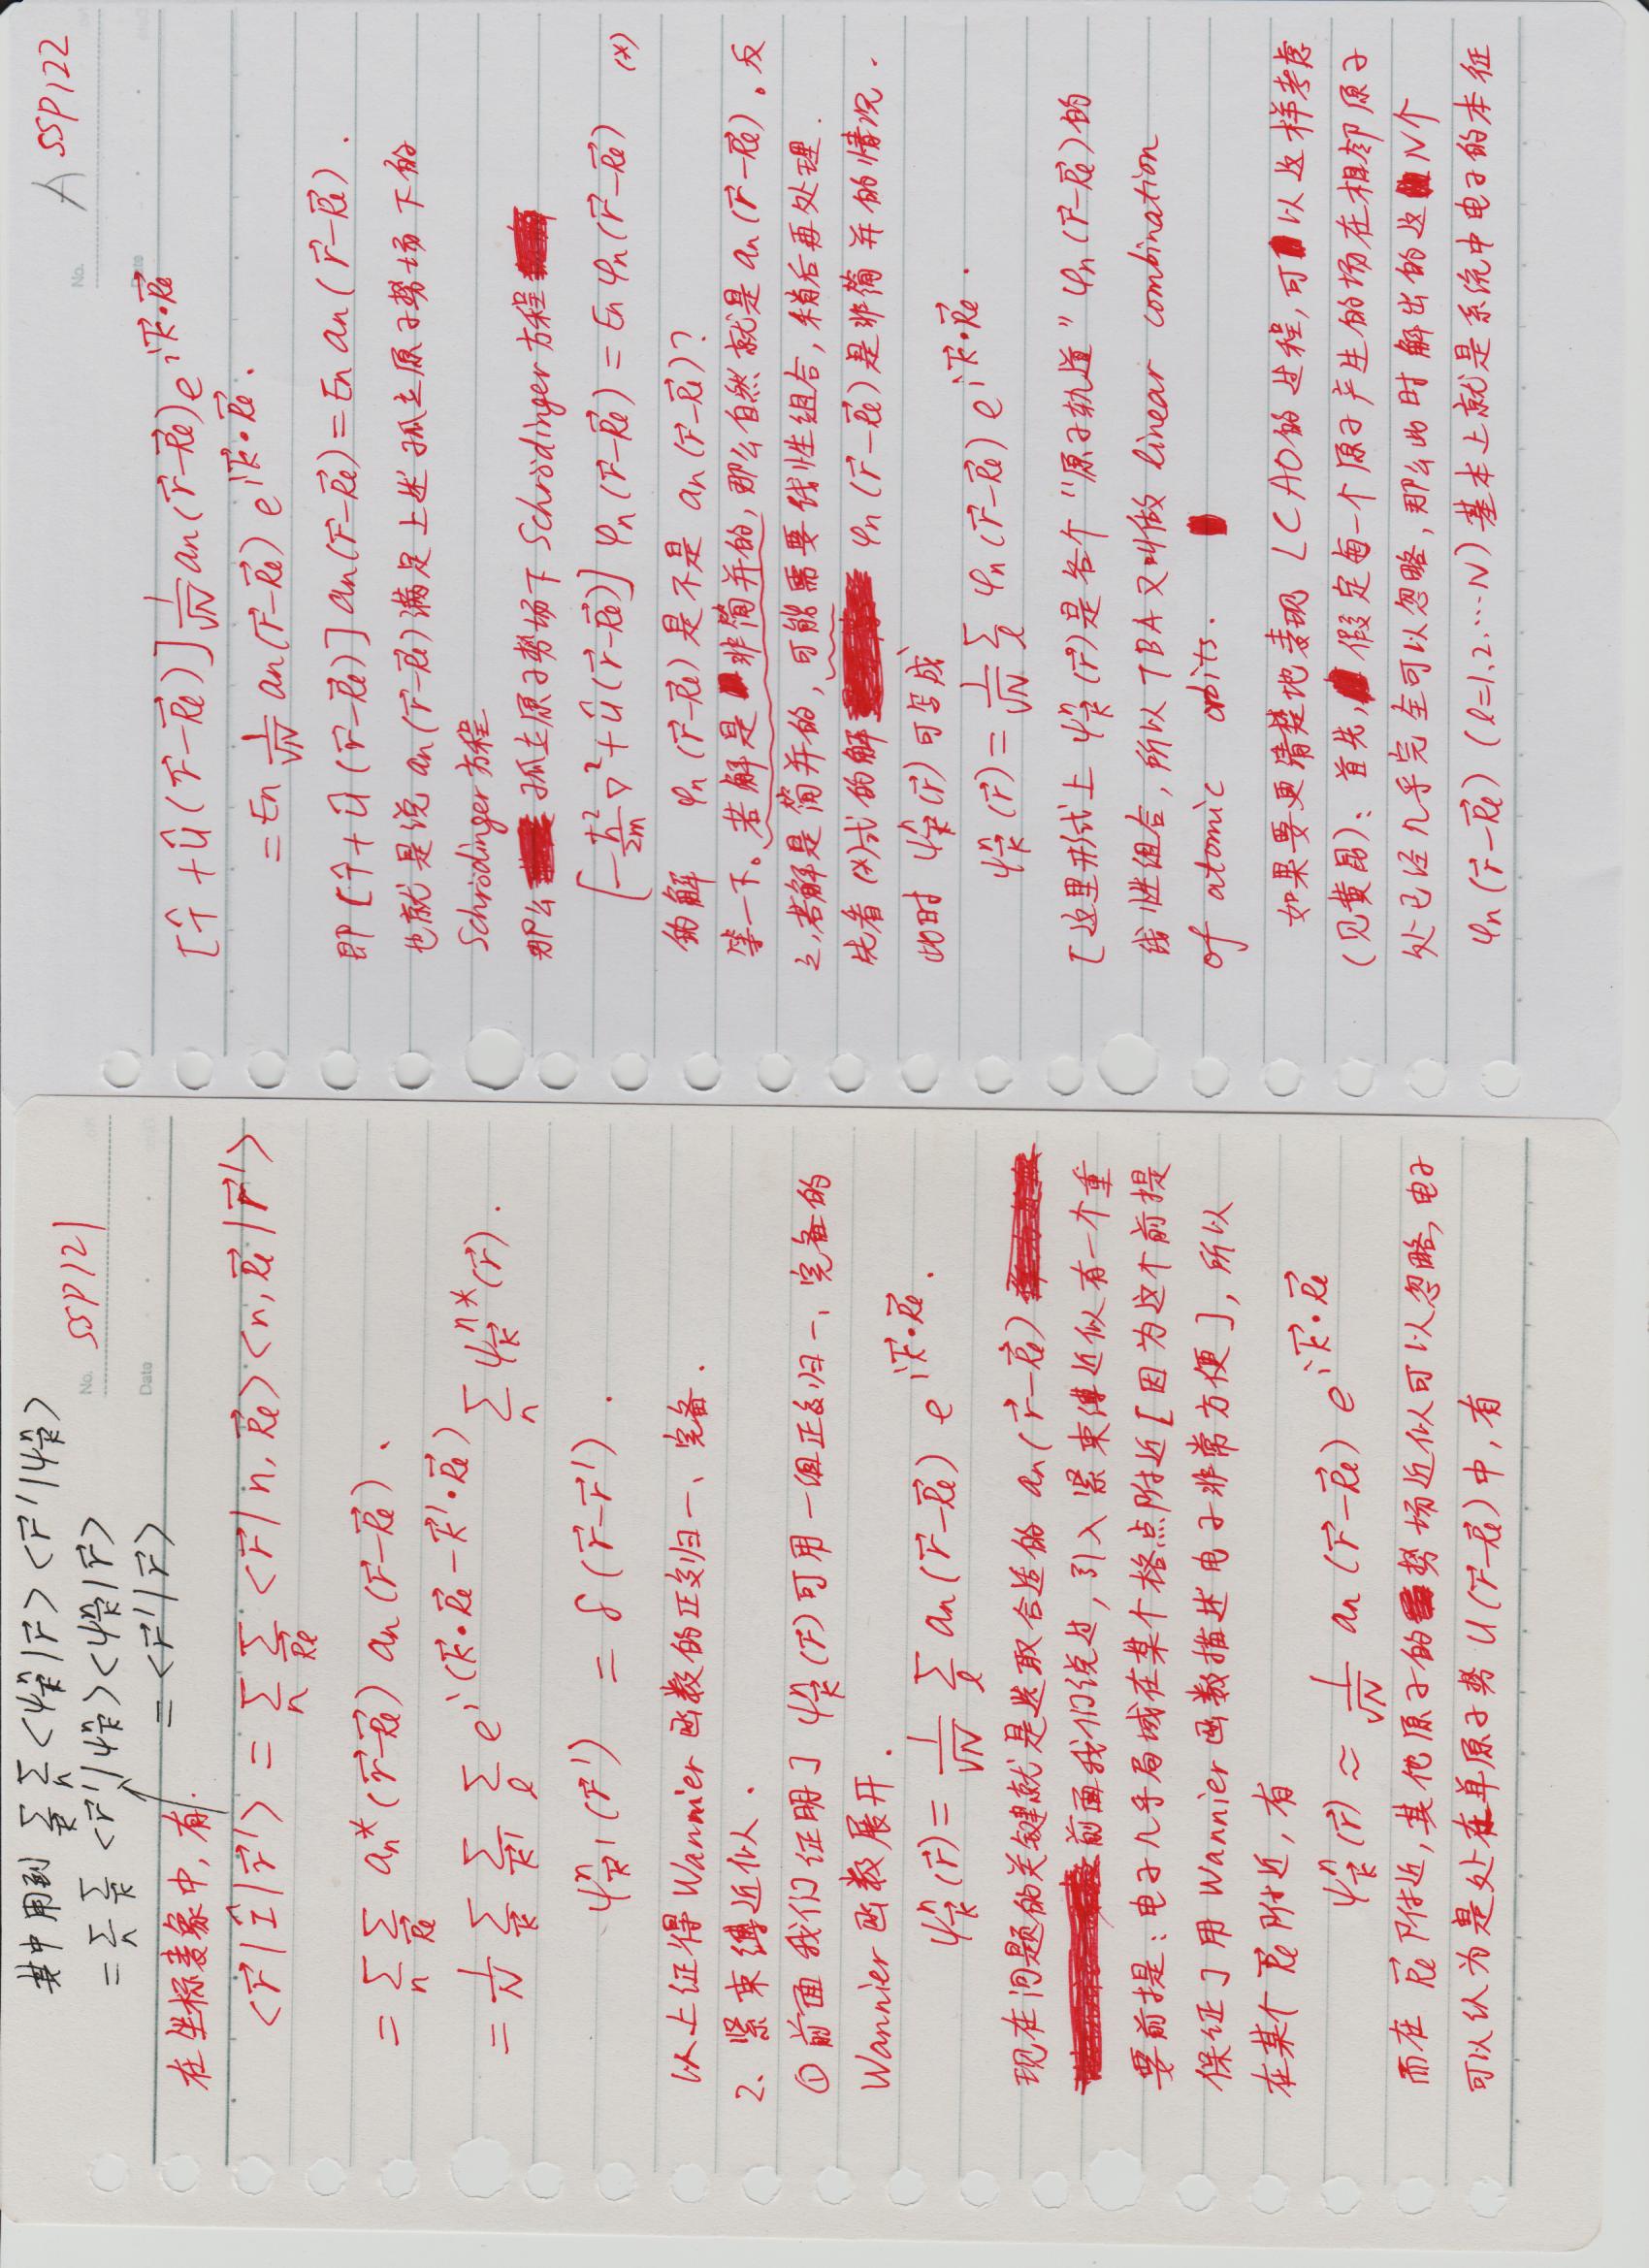 其中用到 Σ_k⃗ Σ_n <ψ_k⃗^n|r⃗> <r⃗'|ψ_k⃗^n>
= Σ_n Σ_k⃗ <r⃗'|ψ_k⃗^n><ψ_k⃗^n|r⃗>
= <r⃗'|r⃗>
No. SSP121
Date
在坐标表象中,有.
<r⃗|Î|r⃗'> = Σ_n Σ_R⃗ℓ <r⃗|n, R⃗ℓ><n, R⃗ℓ|r⃗'>
= Σ_n Σ_R⃗ℓ an*(r⃗-R⃗ℓ) an(r⃗-R⃗ℓ).
= 1/N Σ_k⃗ Σ_k⃗' Σ_ℓ e^{i(k⃗·R⃗ℓ-k⃗'·R⃗ℓ)} Σ_n ψ_k⃗^{n*}(r⃗).
ψ_k⃗'^n(r⃗') = δ(r⃗-r⃗').
以上证得 Wannier 函数的正交归一、完备.
2、紧束缚近似.
① 前面我们证明了 ψ_k⃗^n(r⃗)可用一组正交归一、完备的
Wannier 函数展开.
ψ_k⃗^n(r⃗) = 1/√N Σ_ℓ an(r⃗-R⃗ℓ) e^{ik⃗·R⃗ℓ}.
现在问题的关键就是选取合适的 an(r⃗-R⃗ℓ)
前面我们说过,引入紧束缚近似有一个重
要前提:电子几乎局域在某个格点附近[因为这个前提
保证了用 Wannier 函数描述电子非常方便],所以
在某个 R⃗ℓ 附近,有
ψ_k⃗^n(r⃗) ≈ 1/√N an(r⃗-R⃗ℓ) e^{ik⃗·R⃗ℓ}
而在 R⃗ℓ 附近,其他原子的势场近似可以忽略,电子
可以认为是处在单原子势 U(r⃗-R⃗ℓ)中,有
A SSP122
No.
Date
[T̂+Û(r⃗-R⃗ℓ)] 1/√N an(r⃗-R⃗ℓ) e^{ik⃗·R⃗ℓ}
= En 1/√N an(r⃗-R⃗ℓ) e^{ik⃗·R⃗ℓ}.
即 [T̂+Û(r⃗-R⃗ℓ)] an(r⃗-R⃗ℓ) = En an(r⃗-R⃗ℓ).
也就是说 an(r⃗-R⃗ℓ)满足上述孤立原子势场下的
Schrödinger方程
那么 孤立原子势场下 Schrödinger 方程
[-ħ²/2m ∇²+Û(r⃗-R⃗ℓ)] φn(r⃗-R⃗ℓ) = En φn(r⃗-R⃗ℓ) (*)
的解 φn(r⃗-R⃗ℓ)是不是 an(r⃗-R⃗ℓ)?
等一下。若解是非简并的,那么自然就是 an(r⃗-R⃗ℓ)。反
之,若解是简并的,可能需要线性组合,稍后再处理.
先看(*)式的解 φn(r⃗-R⃗ℓ)是非简并的情况.
此时 ψ_k⃗^n(r⃗)可写成
ψ_k⃗^n(r⃗) = 1/√N Σ_ℓ φn(r⃗-R⃗ℓ) e^{ik⃗·R⃗ℓ}.
[这里形式上 ψ_k⃗^n(r⃗)是各个“原子轨道” φn(r⃗-R⃗ℓ)的
线性组合,所以TBA又叫做 linear combination
of atomic orbits.
如果要更清楚地表现 LCAO的过程,可以这样考虑
(见黄昆):首先,假定每一个原子产生的场在相邻原子
处已经几乎完全可以忽略,那么此时解出的这N个
φn(r⃗-R⃗ℓ) (ℓ=1、2、…N)基本上就是系统中电子的本征